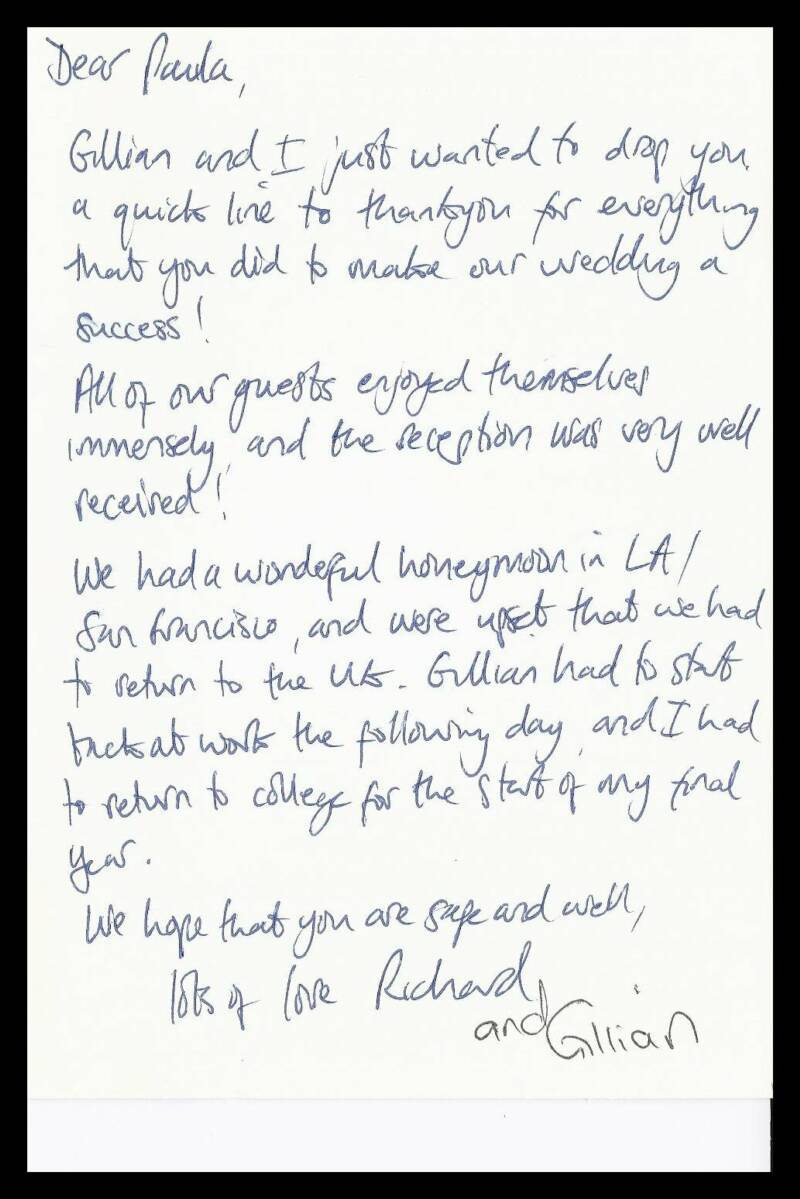 Dear Paula,
Gillian and I just wanted to drop you
a quick line to thankyou for everything
that you did to make our wedding a
success!
All of our guests enjoyed themselves
immensely, and the reception was very well
received!
We had a wonderful honeymoon in LA/
San Francisco, and were upset that we had
to return to the UK. Gillian had to start
back at work the following day, and I had
to return to college for the start of my final
year.
We hope that you are safe and well,
lots of love Richard
and Gillian